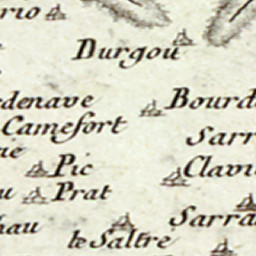 rio
Durgou
denave
Bourd
Camefort
Sarr
ae
Pic
Clavi
u
Prat
hau
Sarra
le Saltre